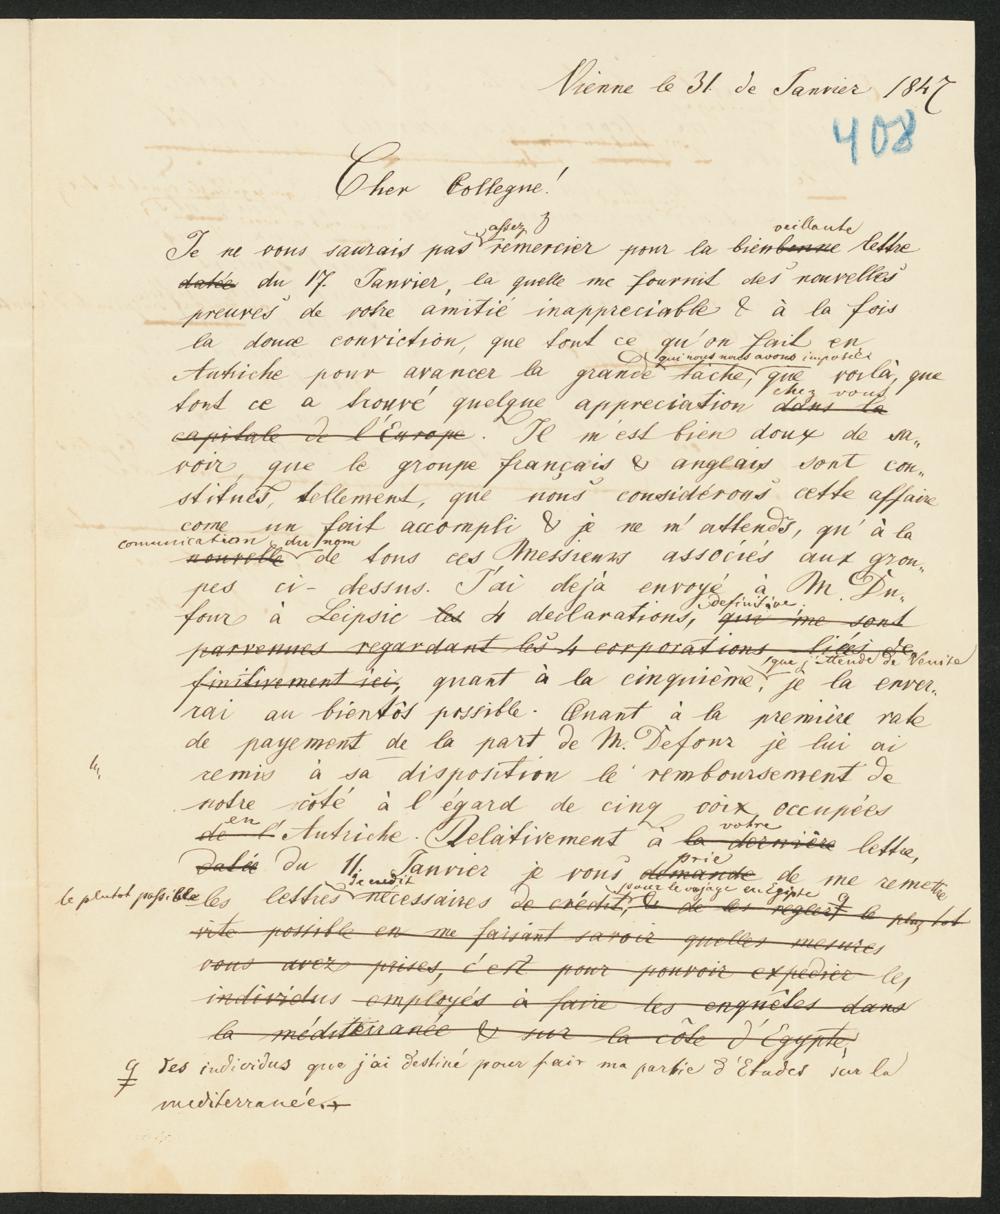 Vienne le 31 de Janvier 1847
408
Cher Collegue!
assez veillante
Je ne vous saurais pas remercier pour la bienbonne lettre
datée du 17. Janvier, la quelle me fournit des nouvelles
preuves de votre amitié inappreciable & à la fois
la douce conviction, que tout ce qu'on fait en
qui nous nous avons imposée
Autriche pour avancer la grande tâche, que voilà, que
chez vous
tout ce a trouvé quelque appreciation dans la
capitale de l'Europe. Il m'est bien doux de sa„
voir, que le groupe français & anglais sont con„
stitués, tellement, que nous considérons cette affaire
come un fait accompli & je ne m'attends, qu'à la
comunication du nom
nouvelle de tous ces Messieurs associés aux grou„
pes ci-dessus. J'ai dejà envoyé à M. Du„
definitive
four à Leipsic les 4 declarations, qui me sont
parvenues regardant les 4 corporations liées de
que j'attends de Venise
finitivement ici, quant à la cinquième, je la enver„
rai au bientôs possible. Quant à la première rate
de payement de la part de M. Defour je lui ai
remis à sa disposition le remboursement de
notre côté à l'égard de cinq voix occupées
en votre
de l'Autriche. Relativement à la dernière lettre,
prie
datée du 11. Janvier je vous demande de me remettre
de credit pour le voyage en Egipte
le plutot possible les lettres nécessaires de crédit, & de les regler le plus tot
vite possible en me faisant savoir quelles mesures
vous avez prises, c'est pour pouvoir expedier les
individus employés à faire les enquêtes dans
la méditerranée & sur la côte d'Egypte,
des individus que j'ai destiné pour fair ma partie d'Etudes sur la
mediterranée.